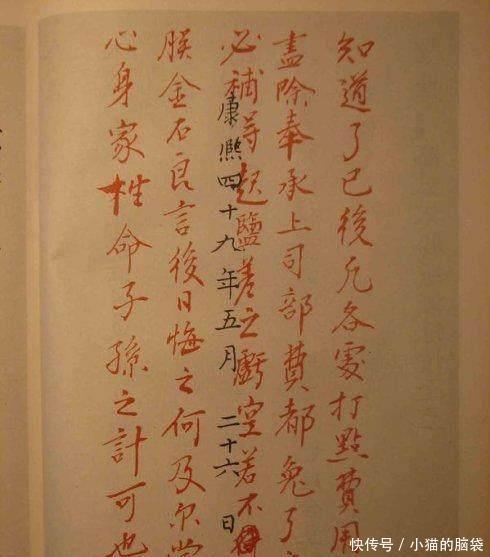 知道了已後凡各處打點費用
盡除奉承上司部費都免了
必補得起鹽差之虧空若不
康熙四十九年五月 二十六日
朕金石良言後日悔之何及尔當
心身家性命子孫之計可也
快传号 / 小猫的脑袋